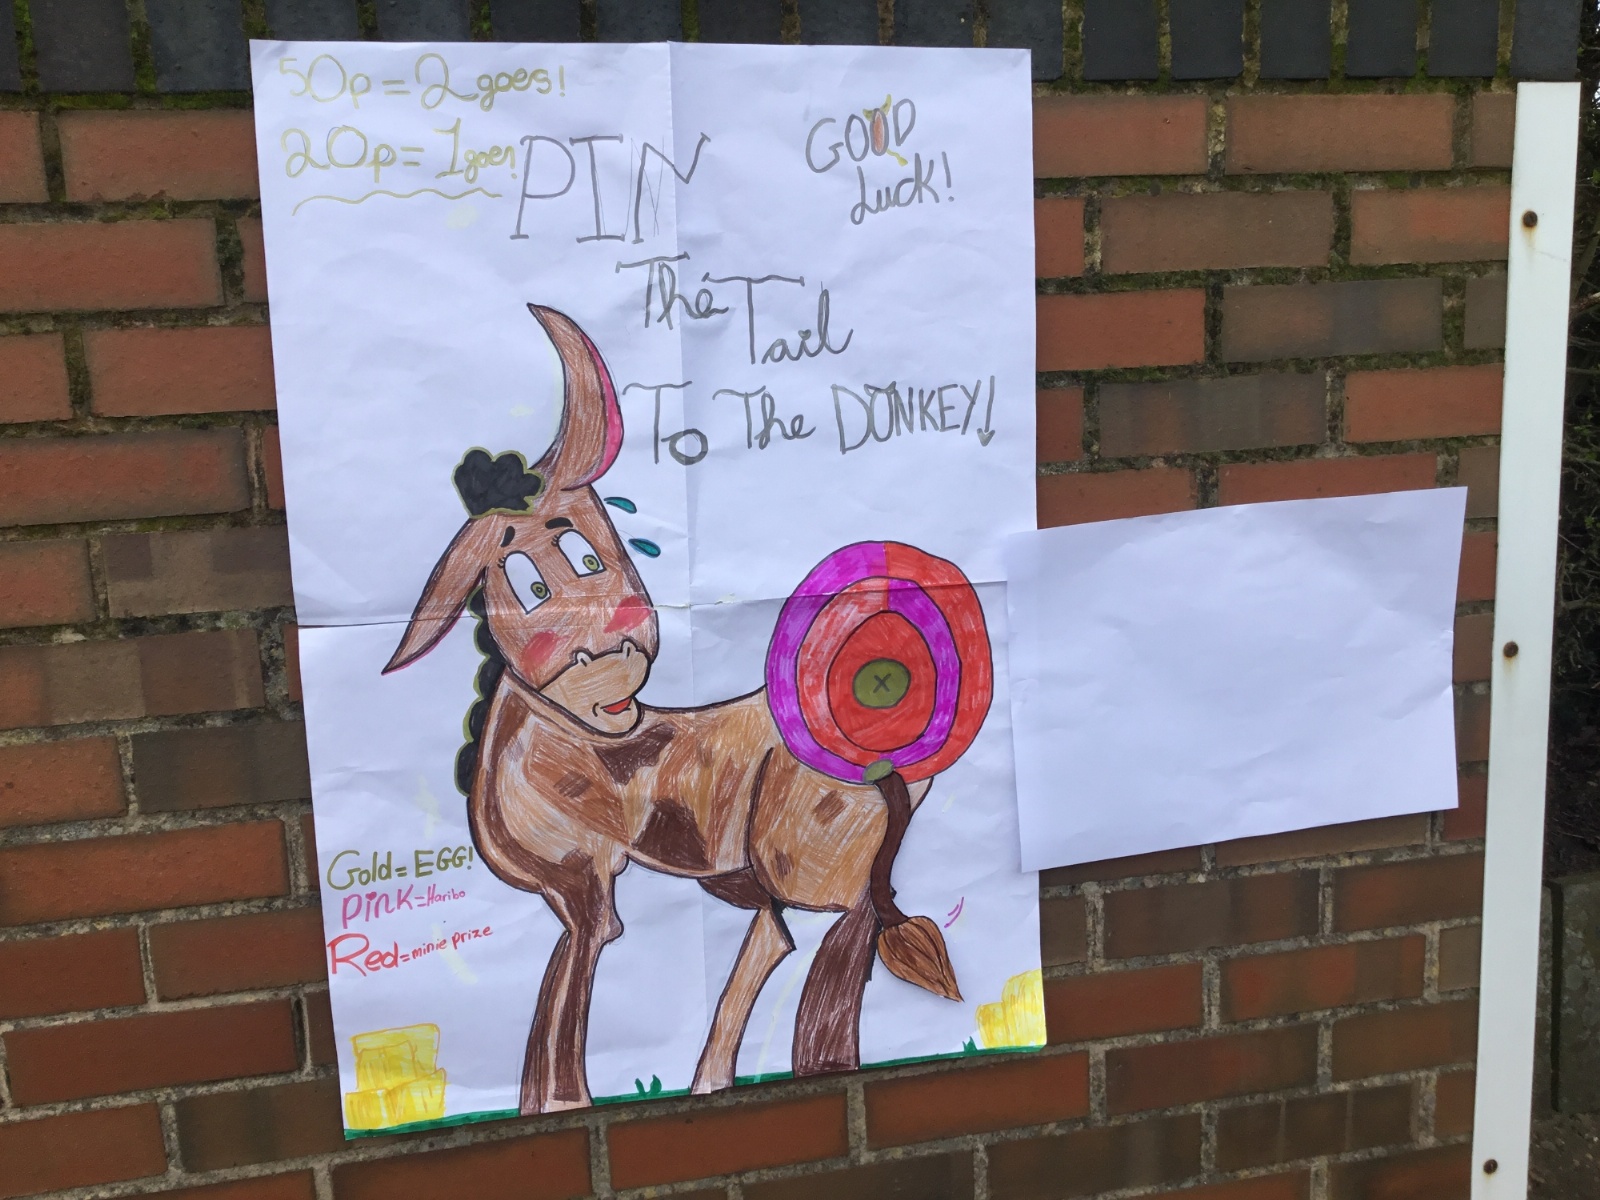 50p = 2 goes!
20p = 1goes!
PIN
The Tail
To The DONKEY!
GOOD
Luck!
X
Gold = EGG!
PINK = Haribo
Red = minie prize